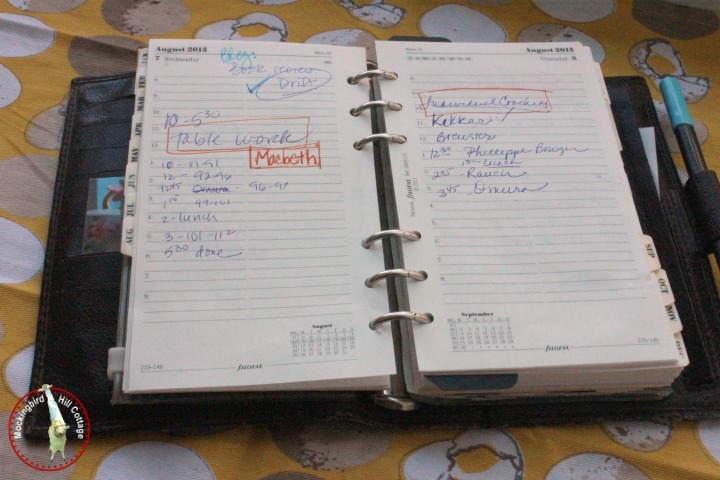 August 2013
7 Wednesday
Week 32
Blog:
book review
Drift
10 - 5 30
table work
Macbeth
12 = 92-96
12 45 Omura - 96-97
1 15 97-101
2 - lunch
3 - 101 - 112
5 30 done
August
219-146
filofax
August 2013
Thursday 8
Individual Coaching
Kakkar
Brewster
12 30 Philippe Bowgen
lunch
2 45 Rauch
3 45 Omura
September
filofax
220-145
JAN
FEB
MAR
APR
MAY
JUN
JUL
AUG
SEP
OCT
NOV
DEC
Mockingbird Hill Cottage